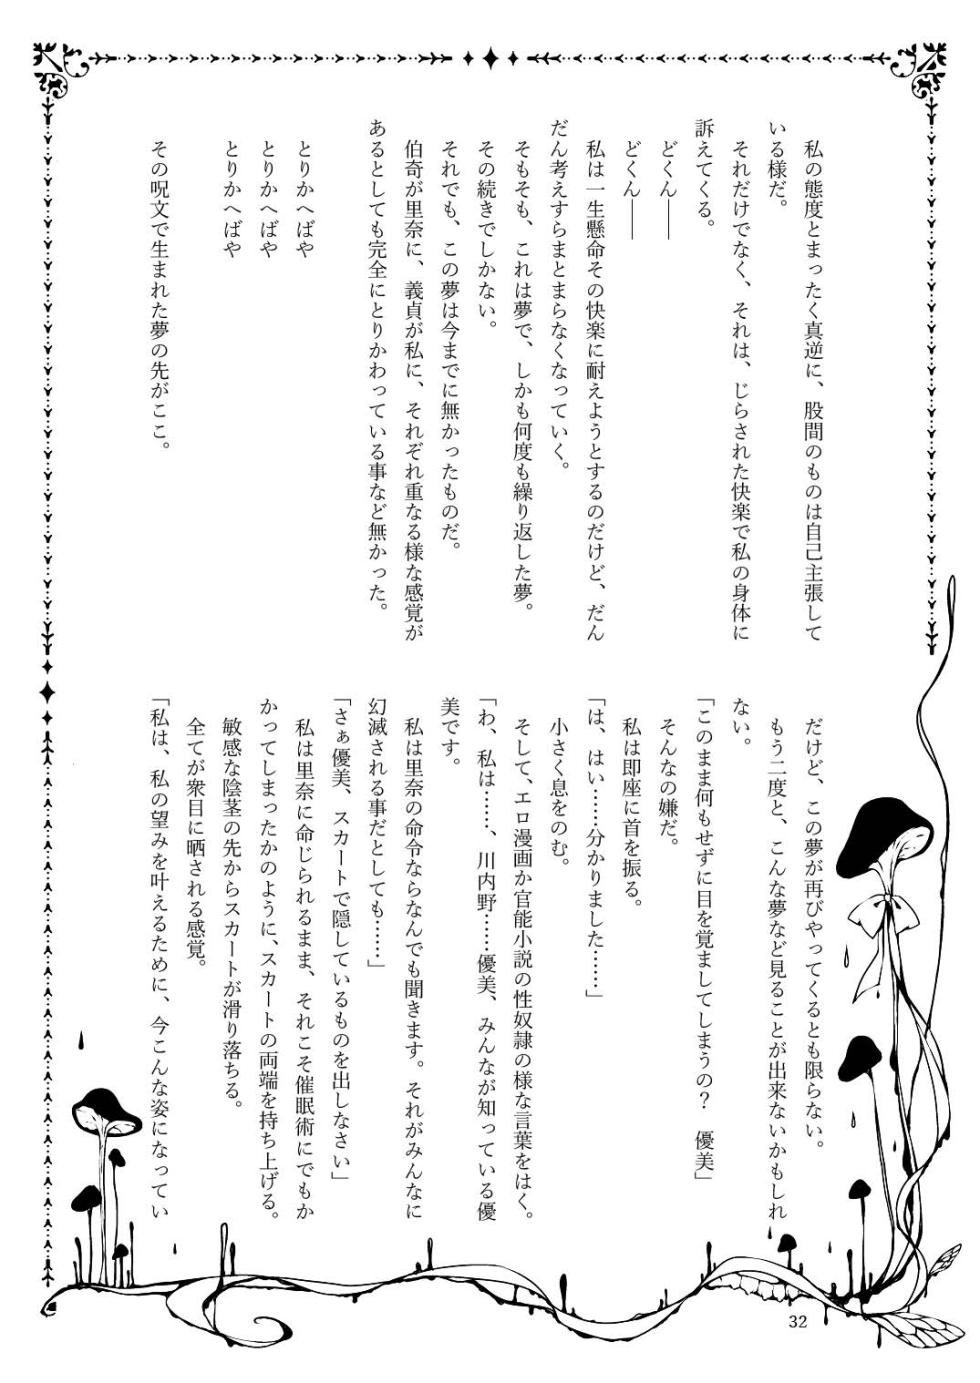 私の態度とまったく真逆に、股間のものは自己主張して
いる様だ。
　それだけでなく、それは、じらされた快楽で私の身体に
訴えてくる。
　どくん――
　どくん――
　私は一生懸命その快楽に耐えようとするのだけど、だん
だん考えすらまとまらなくなっていく。
　そもそも、これは夢で、しかも何度も繰り返した夢。
　その続きでしかない。
　それでも、この夢は今までに無かったものだ。
　伯奇が里奈に、義貞が私に、それぞれ重なる様な感覚が
あるとしても完全にとりかわっている事など無かった。
　とりかへばや
　とりかへばや
　とりかへばや
　その呪文で生まれた夢の先がここ。
　だけど、この夢が再びやってくるとも限らない。
　もう二度と、こんな夢など見ることが出来ないかもしれ
ない。
「このまま何もせずに目を覚ましてしまうの？　優美」
　そんなの嫌だ。
　私は即座に首を振る。
「は、はい……分かりました……」
　小さく息をのむ。
　そして、エロ漫画か官能小説の性奴隷の様な言葉をはく。
「わ、私は……、川内野……優美、みんなが知っている優
美です。
　私は里奈の命令ならなんでも聞きます。それがみんなに
幻滅される事だとしても……」
「さぁ優美、スカートで隠しているものを出しなさい」
　私は里奈に命じられるまま、それこそ催眠術にでもか
かってしまったかのように、スカートの両端を持ち上げる。
　敏感な陰茎の先からスカートが滑り落ちる。
　全てが衆目に晒される感覚。
「私は、私の望みを叶えるために、今こんな姿になってい
32